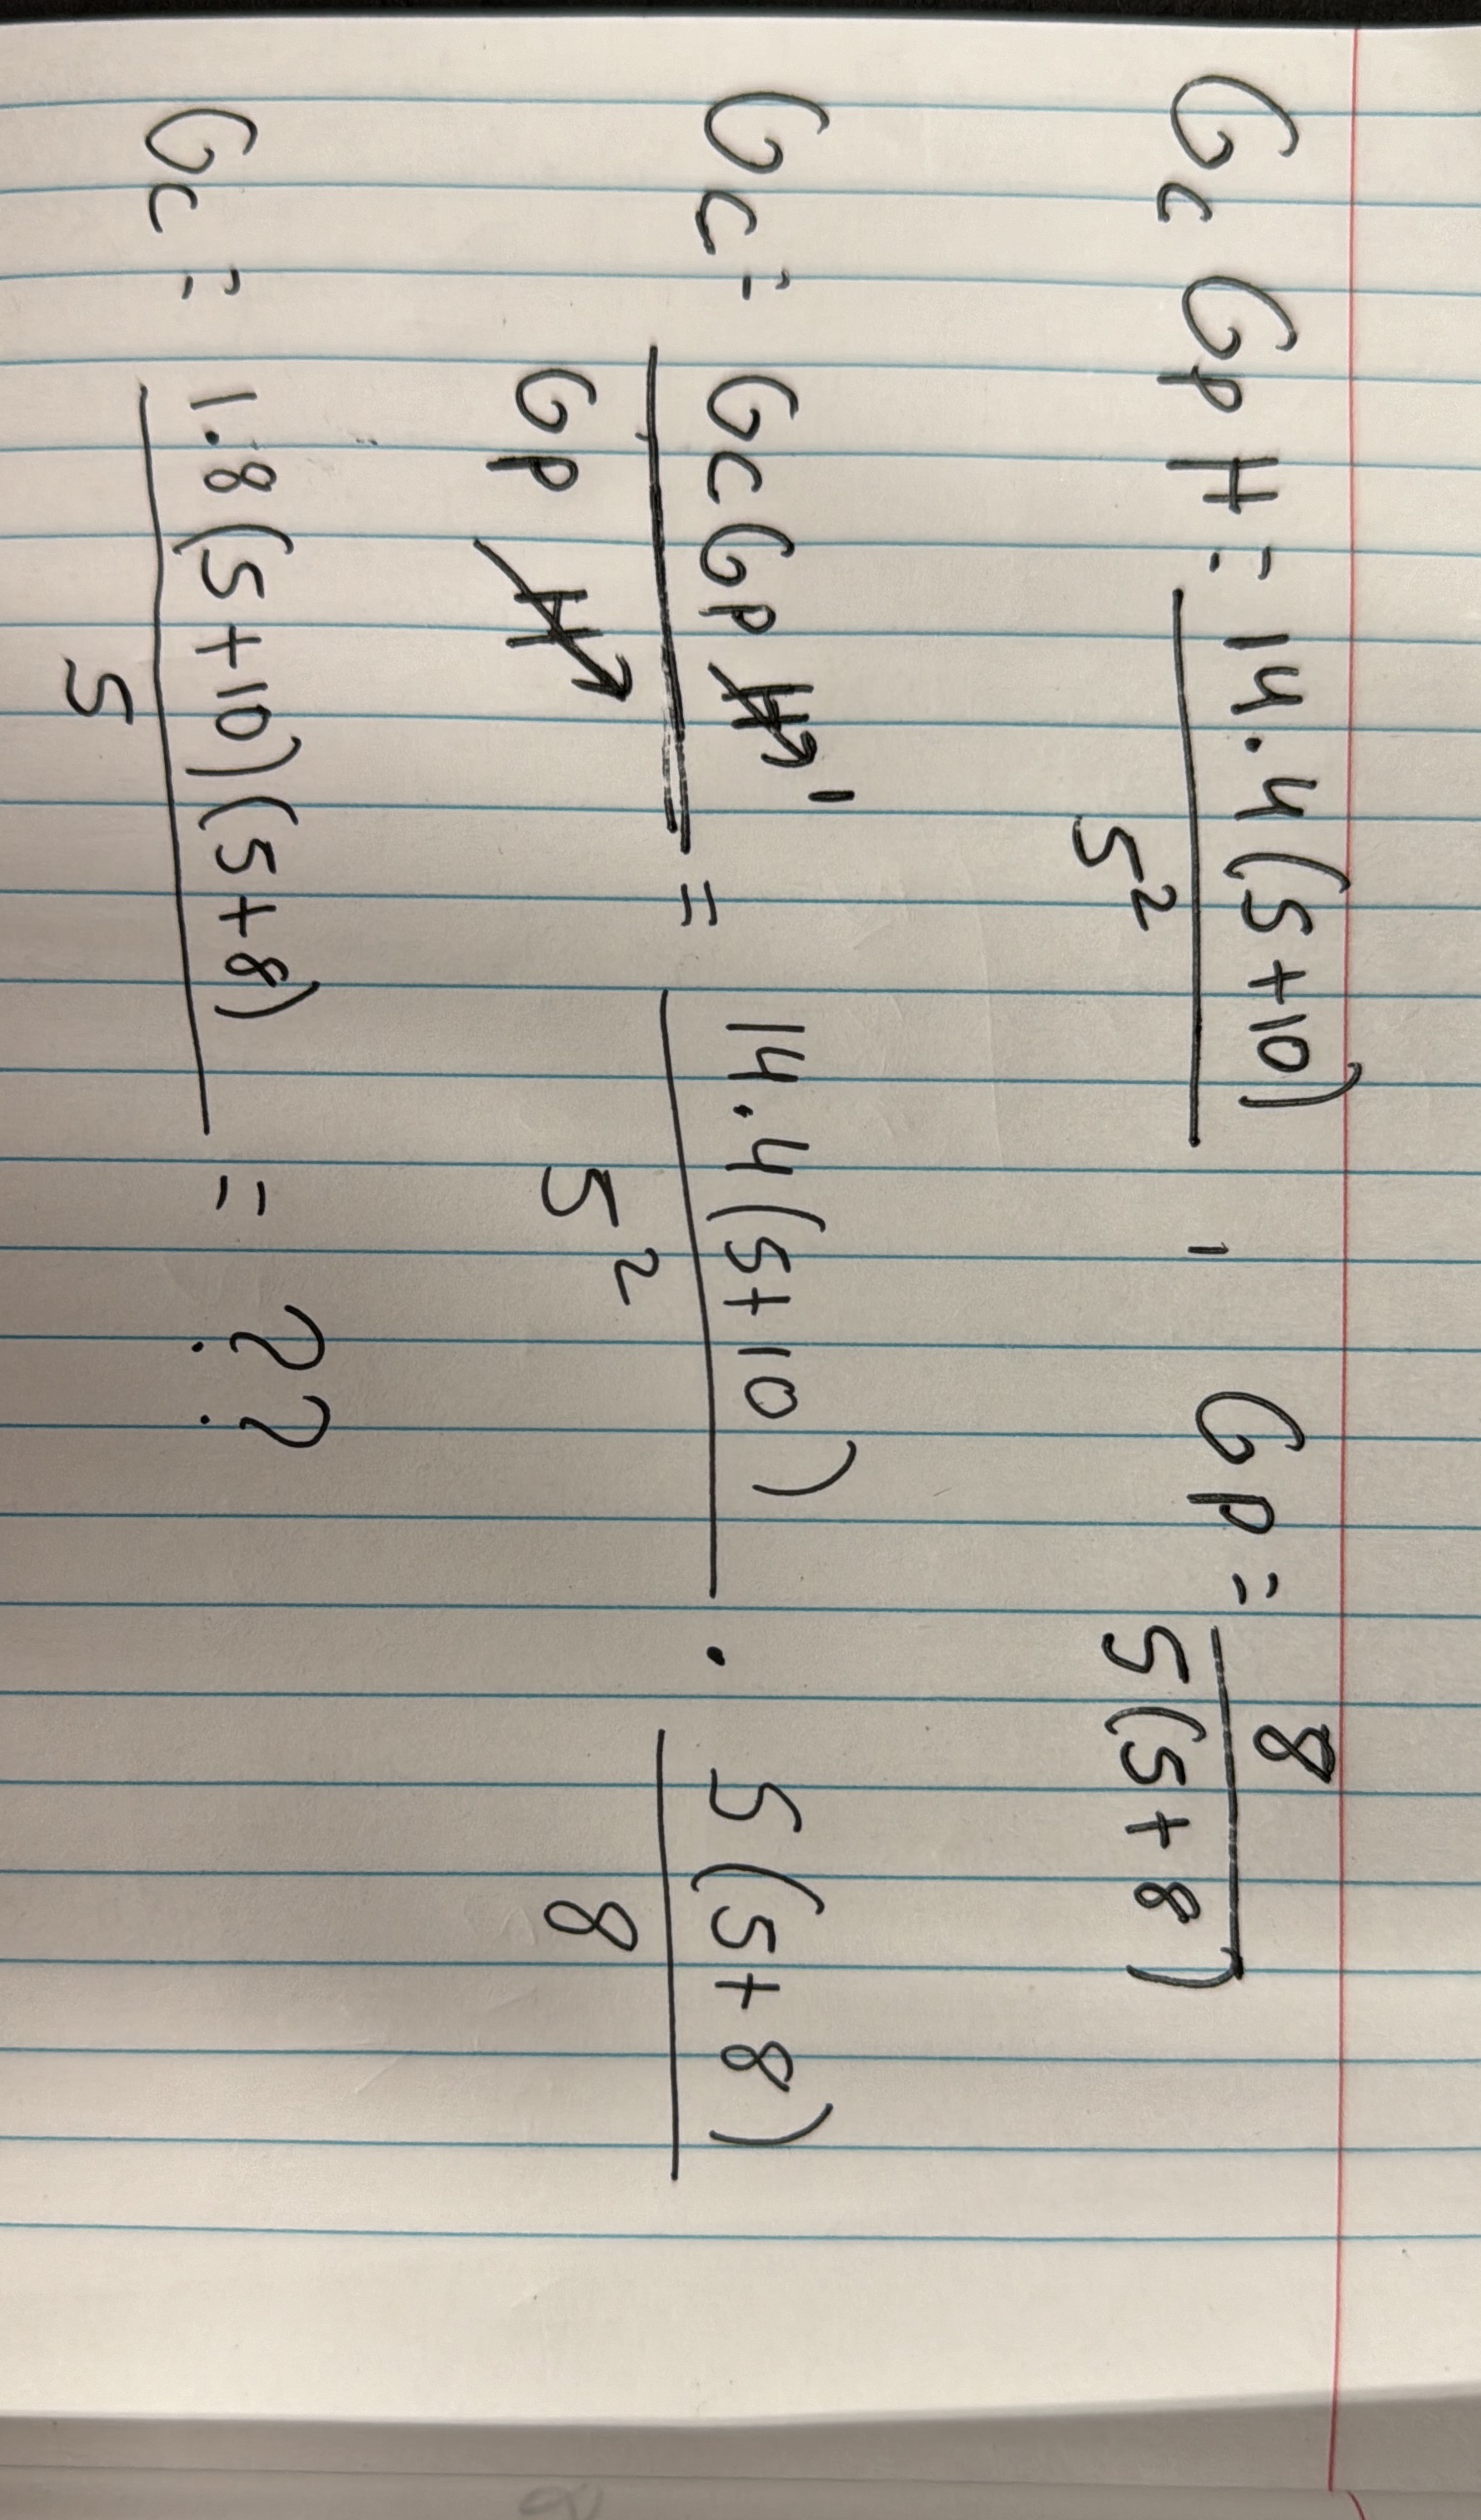 Gc Gp H = 14.4(s+10) / s² , Gp = 8 / s(s+8)
Gc = Gc Gp H ' / Gp H = 14.4(s+10) / s² · s(s+8) / 8
Gc = 1.8(s+10)(s+8) / s = ??